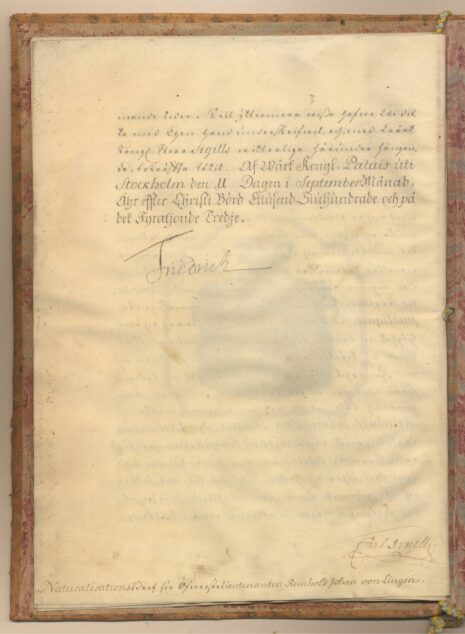 mande tider. Till yttermera wisso hafwe Wi det-
ta med Egen hand underskrifwit, och med Wårt
Kongl. Stora Sigills witterliga härunder hängan-
de, bekräfta låtit. Af Wårt Kongl. Palais uti
Stockholm den 11 Dagen i September Månad,
Åhr effter Christi Börd Ettusend Siuhundrade och på
det Fyratijonde Tredje.
Friderich
Naturalisations bref för Öfwerstelieutenanten Reinhold Johan von Lingen.